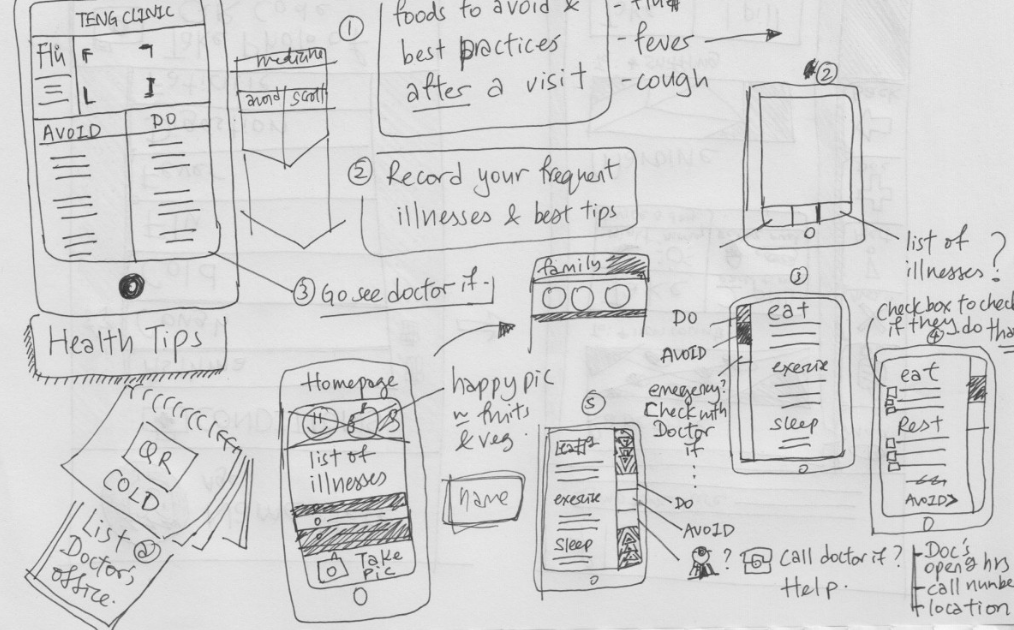 TENG CLINIC
Flu
AVOID
DO
medicine
avoid
scroll
①
foods to avoid &
best practices
after a visit
- flu
- fever
- cough
②
Record your frequent
illnesses & best tips
③ Go see doctor if.
Health Tips
QR
COLD
List @
Doctor's
office.
Homepage
list of
illnesses
Take
Pic
happy pic
~ fruits
& veg.
name
family
②
list of
illnesses?
③
eat
exercise
sleep
DO
AVOID
emergency?
Check with
Doctor
if
checkbox to check
if they do that
④
eat
Rest
AVOID>
⑤
eat
exercise
sleep
DO
AVOID
?
Call doctor if?
Help.
Doc's
opening hrs
call number
location